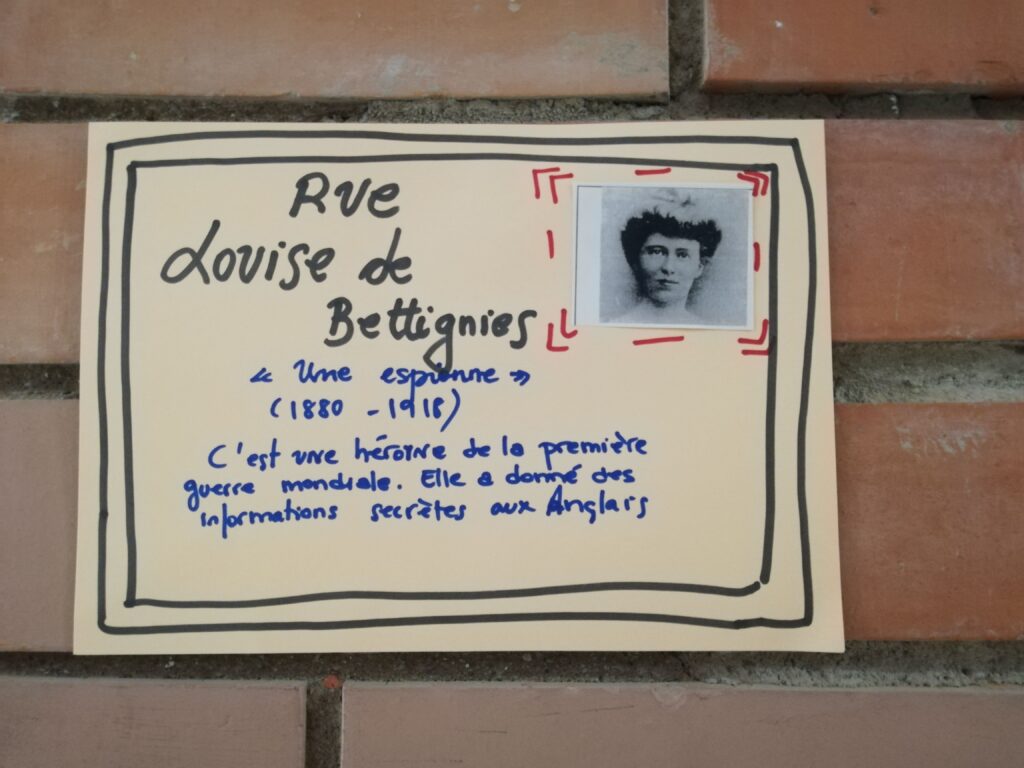 Rue
Louise de
Bettignies
« Une espionne »
(1880 - 1918)
C'est une héroïne de la première
guerre mondiale. Elle a donné des
informations secrètes aux Anglais